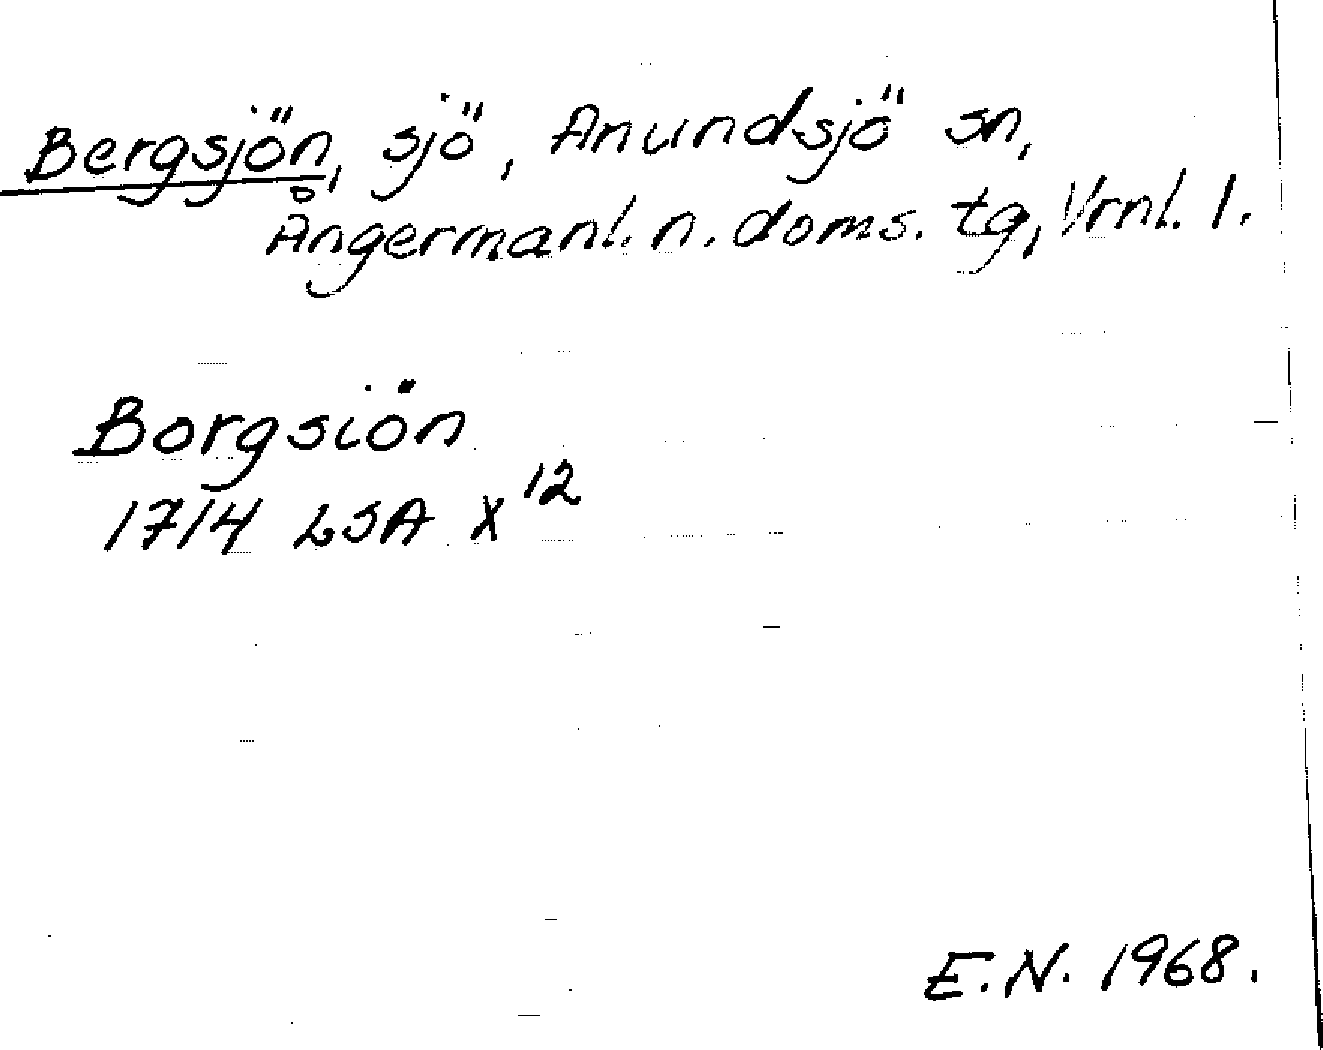 Bergsjön, sjö, Anundsjö sn,
Ångermanl. n. doms. tg, Vrnl. l.
Borgsiön
1714 LSA X¹²
E.N. 1968.